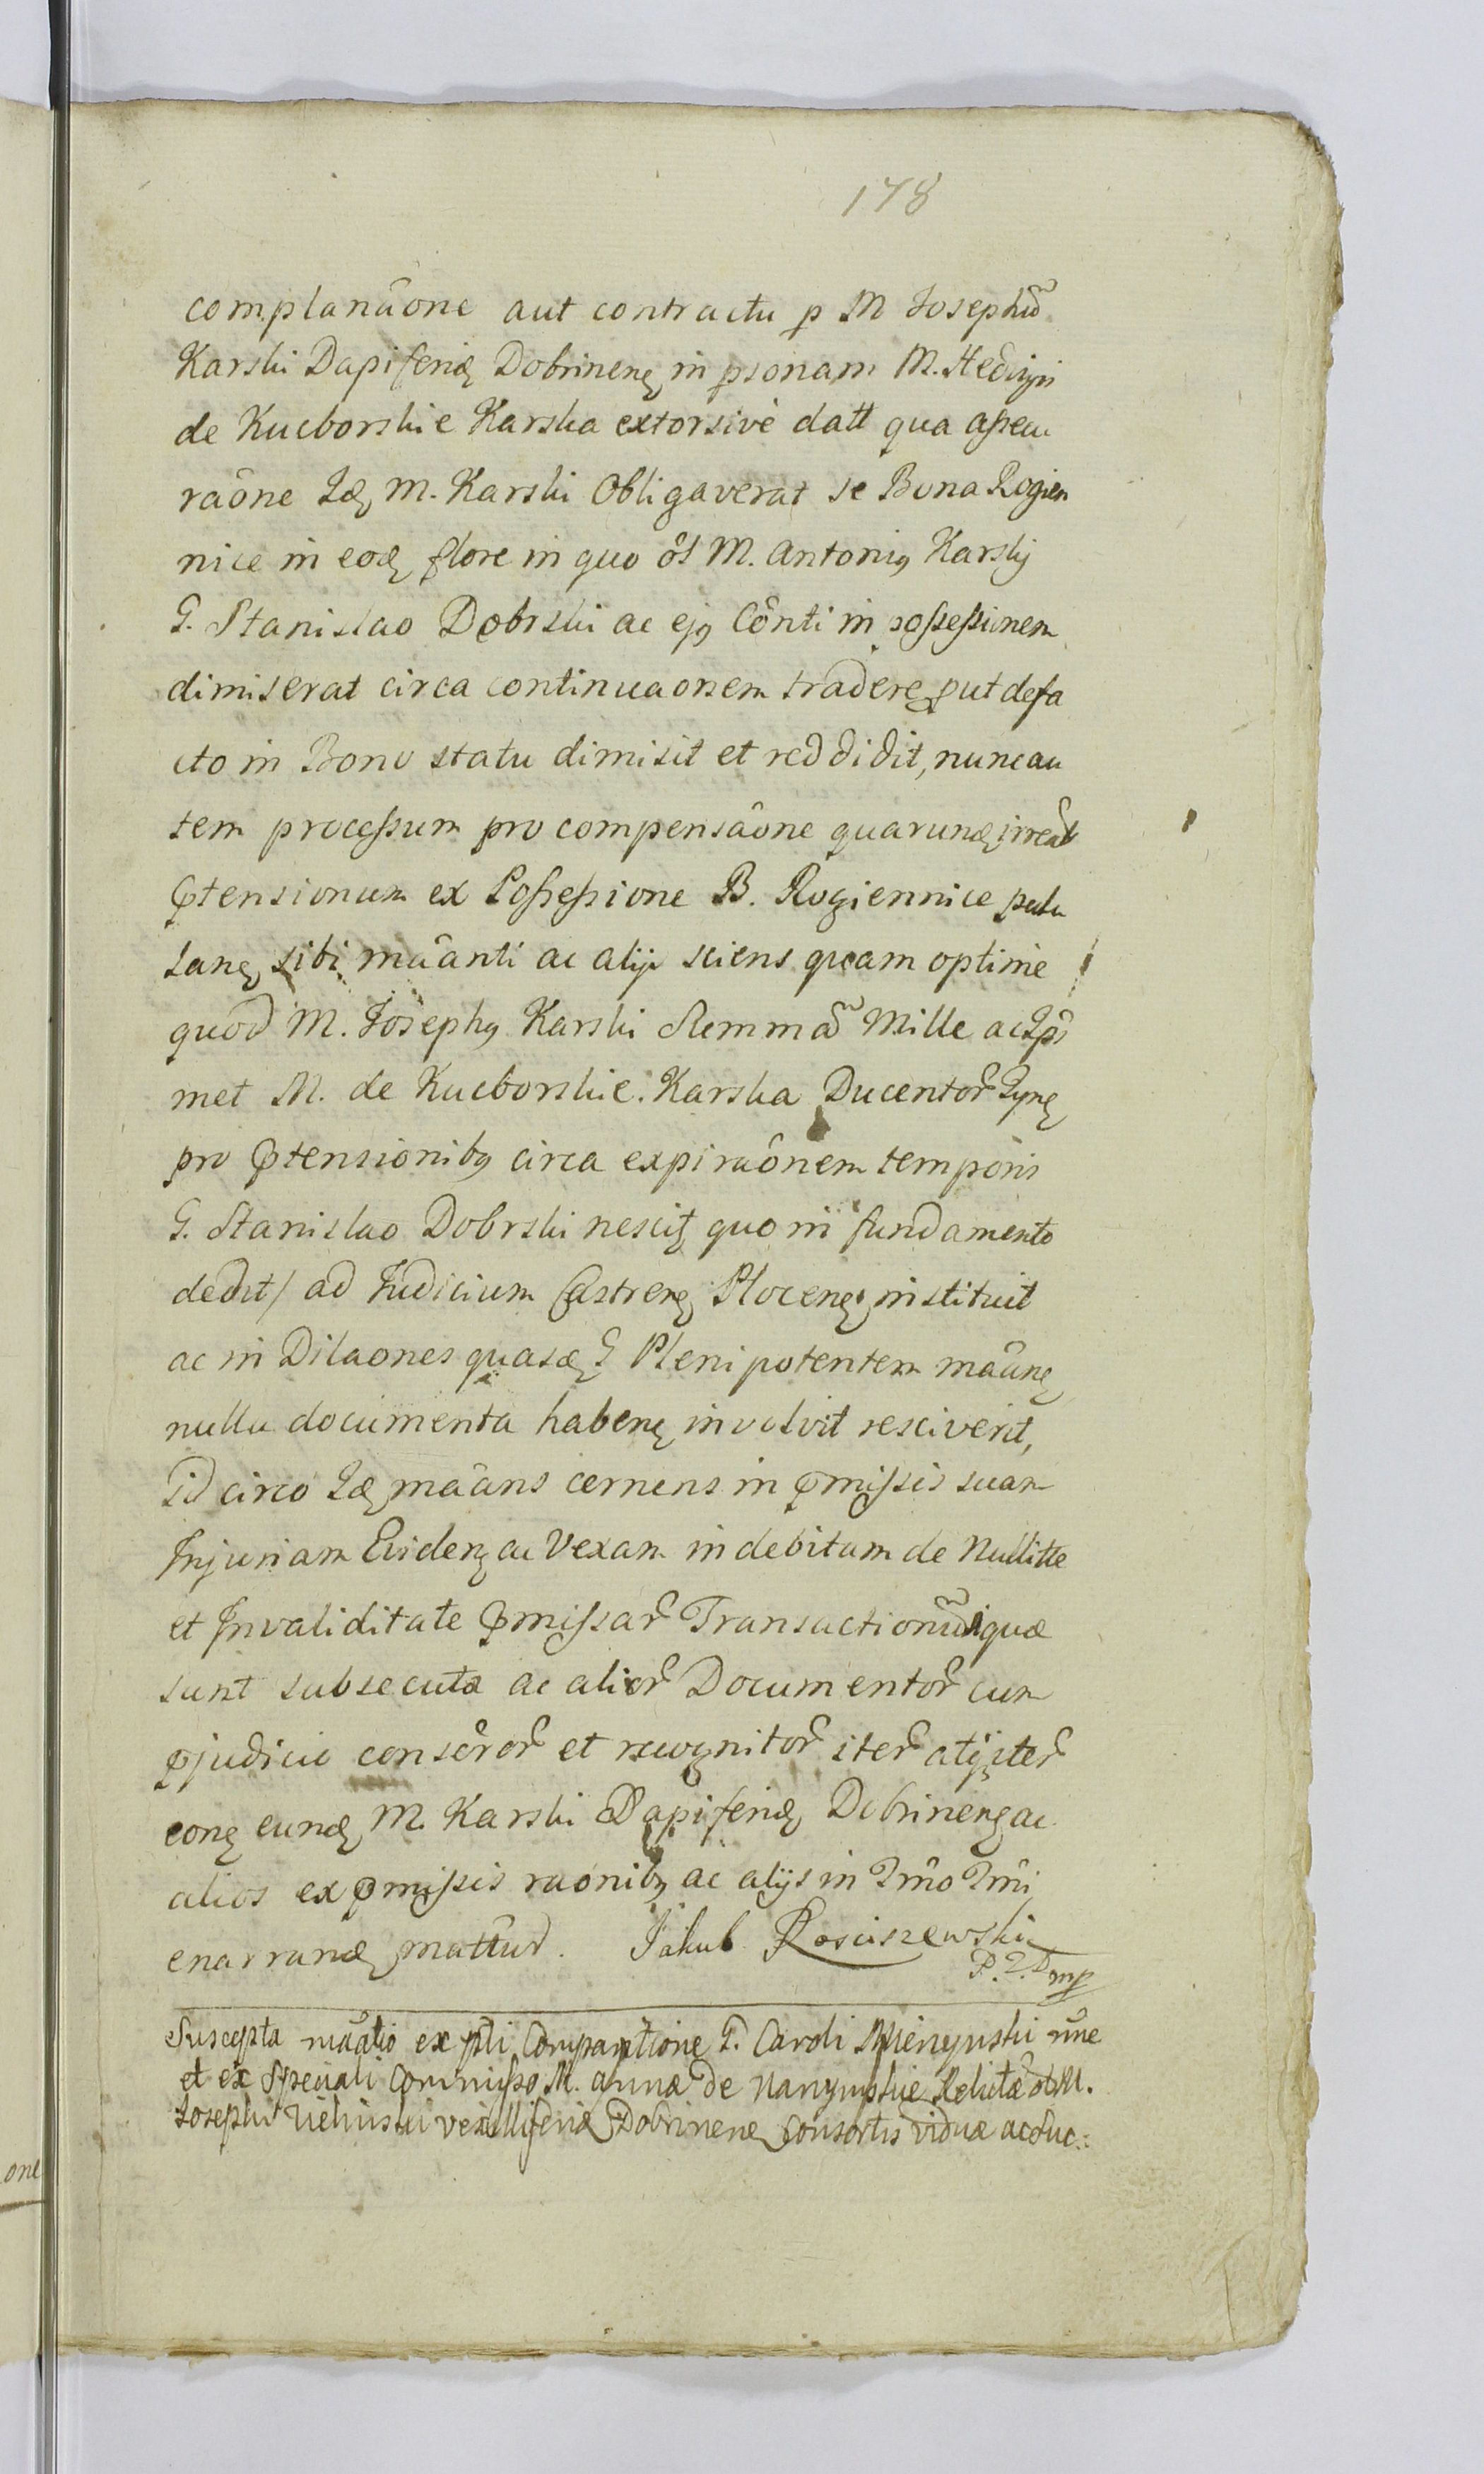 178
complanãone aut contractu p M Josephũ
Karski Dapiferũ Dobrinenę in psonam M. Hedvigis
de Kuczborskie Karska extorsivè datt qua assecu
raône Idę M. Karski Obligaverat se Bona Rogien
nice in eodę flore in quo ôl M. Antonig Karskj
G. Stanislao Dobrski ac ejg Cônti in possessionem
dimiserat circa continuaonem tradere put defa
cto in Bono statu dimisit et reddidit, nunc au
tem processum pro compensâone quarundę irreał
ptensionum ex Possessione B. Rogiennice
sibi mâanti ac alijs sciens quam optime
quod M. Josephg Karski Summã Mille ac Ipsi
met M. de Kucborskie Karska Ducentor Tynę
pro ptensionibg circa expiraônem temporis
G. Stanislao Dobrski nescitę quo in fundamento
dedit / ad Judicium Castrenę Plocenę instituit
ac in Dilaones quasdę G Plenipotentem mâanę
nulla documenta habenę involvit resciverit,
Idcirco Idę mâans cernens in pmissis suam
Injuriam Evidenę ac Vexam indebitam de Nullitte
et Invaliditate pmissar Transactionũ quæ
sunt subsecutæ ac alior Documentor cum
pjudicio conserор et recognitor iter atqiter
conę eundę M. Karski Dapiferũ Dobrinenę ac
alios ex pmissis raonibg ac alijs in Tmo Tmi
enarrandę mattud. Jakub Rosciszewski
P. T. D mp
Suscepta mâatio ex psti Comparitione G. Caroli nne
et ex speciali Commisso M. Annæ de Relictæ ol M.
Josephi vexilliferi Dobrinenę Consortis viduæ ac suc:
one